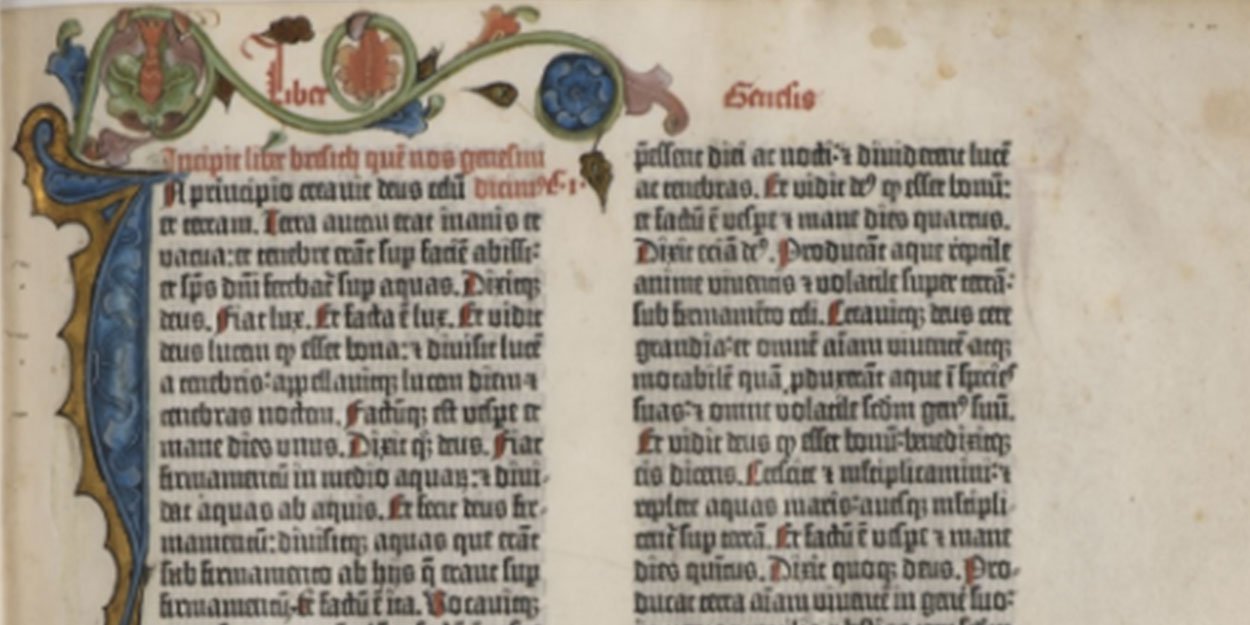 Liber
Genesis
Incipit liber bresith quē nos genesim
IN principio creavit deus celū dicimꝰ
et terram. Terra autem erat inanis et
vacua: et tenebre erāt sup faciē abissi:
et sp̄s dn̄i ferebat̄ sup aquas. Dixitqꝫ
deus. Fiat lux. Et facta ē lux. Et vidit
deus lucem ꝙ esset bona: ⁊ divisit lucē
a tenebris: appellavitqꝫ lucem diem ⁊
tenebras noctem. Factūqꝫ est vespe et
mane dies unus. Dixit qꝫ deus. Fiat
firmamentū in medio aquaꝝ: ⁊ divi-
dat aquas ab aquis. Et fecit deus fir-
mamentū: divisitqꝫ aquas que erāt
sub firmamento ab hijs q̄ erant sup
firmamentū: Et factū ē ita. Vocavitqꝫ
p̄essent diei ac nocti: ⁊ dividerent lucē
ac tenebras. Et vidit deꝰ ꝙ esset bonū:
et factū ē vespe ⁊ mane dies quartus.
Dixit eciā deꝰ. Producāt aque reptile
anime viventis ⁊ volatile super terrā:
sub firmamēto celi. Creavitqꝫ deus cete
grandia: et omnē aīam viventē atqꝫ
motabilē quā ꝓduxerāt aque ī species
suas: ⁊ omne volatile scdm genꝰ suū.
Et vidit deus ꝙ esset bonū: benedixitqꝫ
eis dicens. Crescite ⁊ multiplicamini: ⁊
replete aquas maris: avesqꝫ multipli-
cent̄ sup terrā. Et factū ē vespe ⁊ mane
dies quītus. Dixit quoqꝫ deus. Pro-
ducat terra aīam viventē in genē suo: